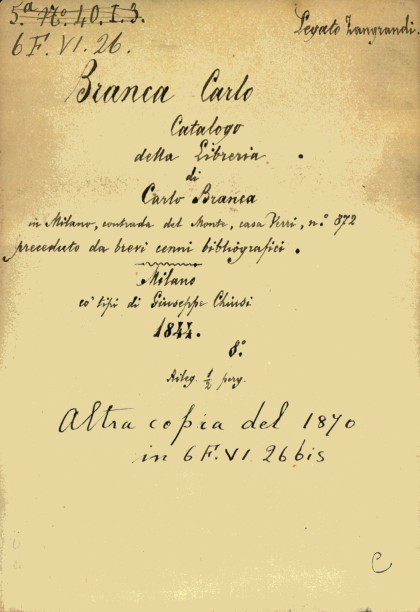 5.ª N.º 40.I.3.
Legato Zangrandi.
6 F. VI. 26.
Branca Carlo
Catalogo
della Libreria
di
Carlo Branca
in Milano, contrada del Monte, casa Verri, n.º 872
preceduto da brevi cenni bibliografici.
Milano
co' tipi di Giuseppe Chiusi
1844.
8.º
Rileg. 1/2 perg.
Altra copia del 1870
in 6 F. VI 26 bis
C